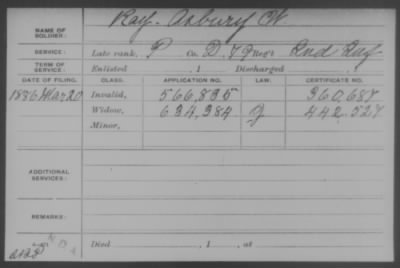 NAME OF SOLDIER: Ray, Asbury W.
SERVICE: Late rank, P Co. D, 79 Reg't Ind Inf
TERM OF SERVICE: Enlisted , 1 Discharged , 1
DATE OF FILING. CLASS. APPLICATION NO. LAW. CERTIFICATE NO.
1886 Mar 20 Invalid, 566,835 360,687
Widow, 634,384 442,527
Minor,
ADDITIONAL SERVICES:
REMARKS:
Died , 1 , at